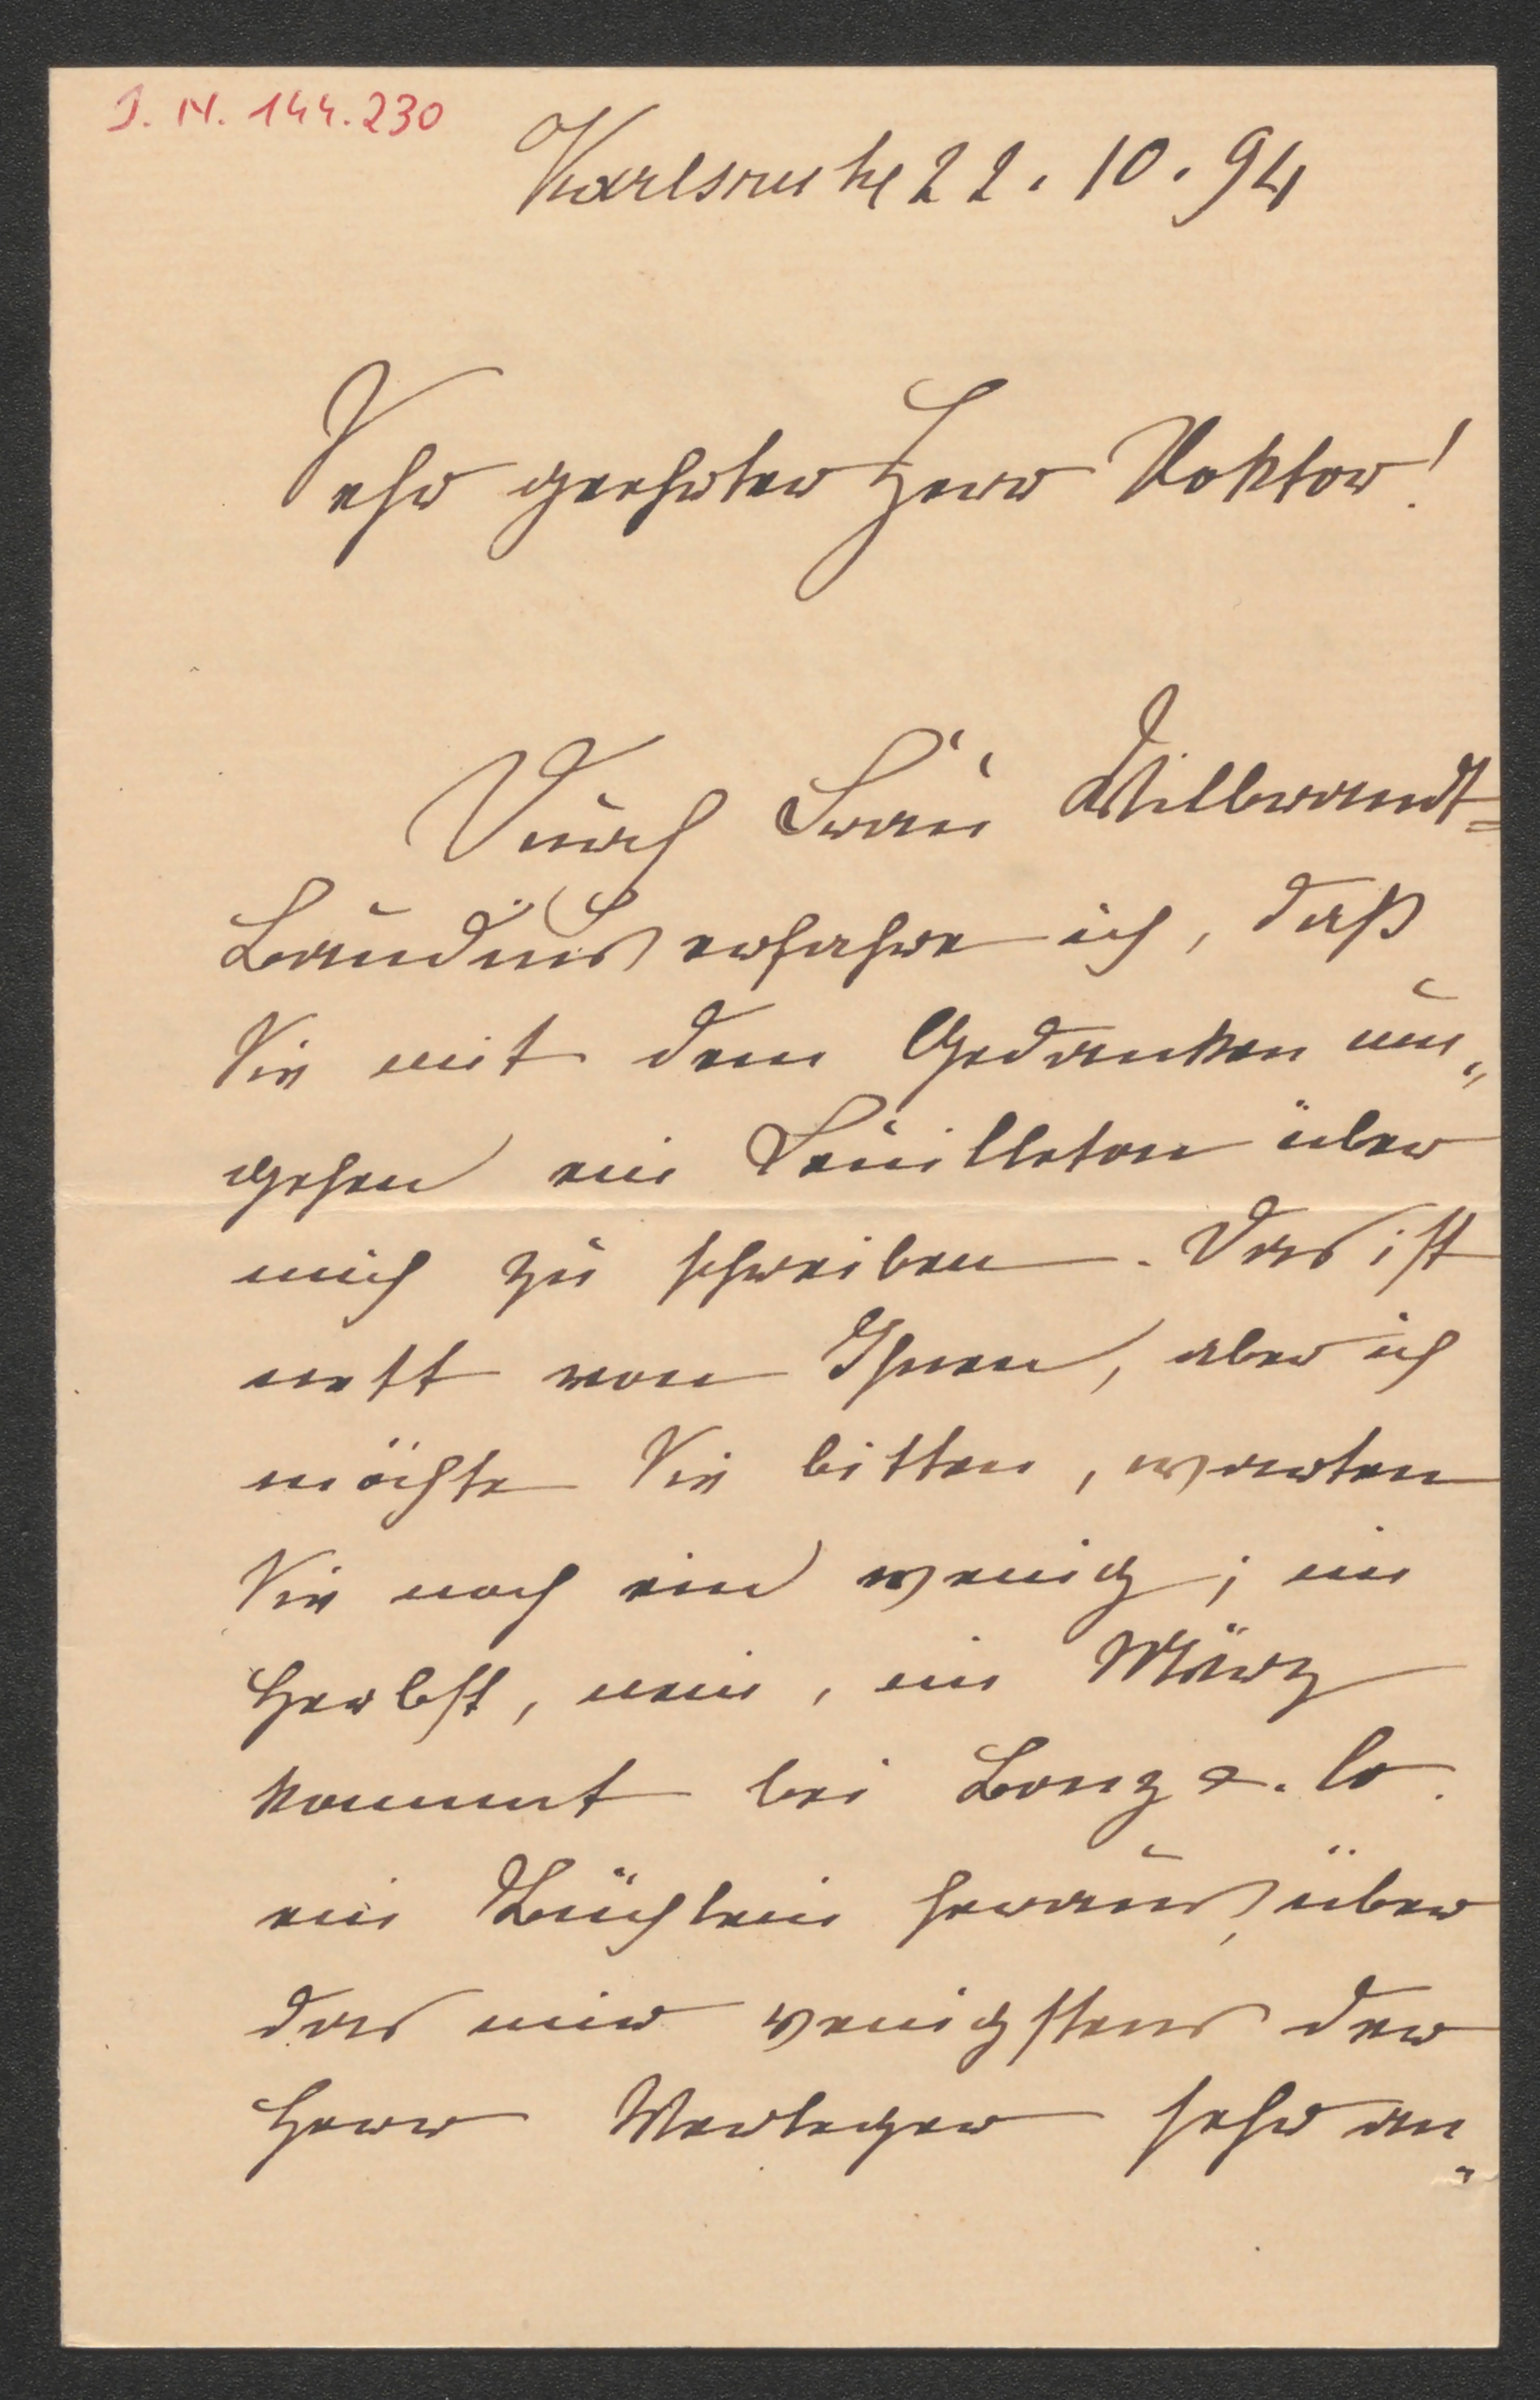 J. N. 144.230
Karlsruhe 22. 10. 94
Sehr geehrter Herr Doktor!
Durch Frau Willbrandt=
Baudius erfahre ich, daß
Sie mit dem Gedanken um„
gehen ein Feuilleton über
mich zu schreiben. Das ist
nett von Ihnen, aber ich
möchte Sie bitten, warten
Sie noch ein wenig; im
Herbst, nein, im März
kommt bei Bonz e. Co.
ein Büchlein heraus, über
das mir wenigstens der
Herr Verleger sehr an„